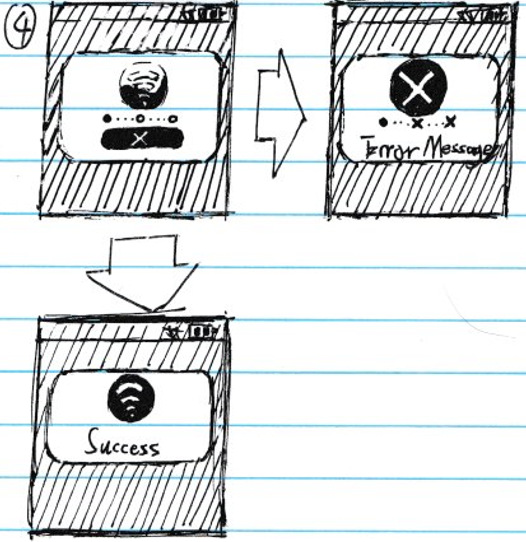 ④
Error Message
Success